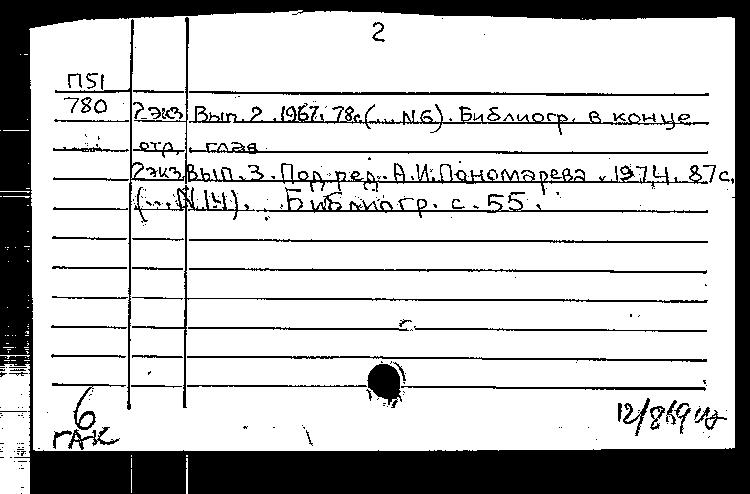 2
П51
780 2экз Вып. 2. 1967. 78с. (... N6). Библиогр. в конце
отд. глав
2экз Вып. 3. Под ред. А.И. Пономарева. 1974. 87с.
(... N14). Библиогр. с. 55.
6
ГАК